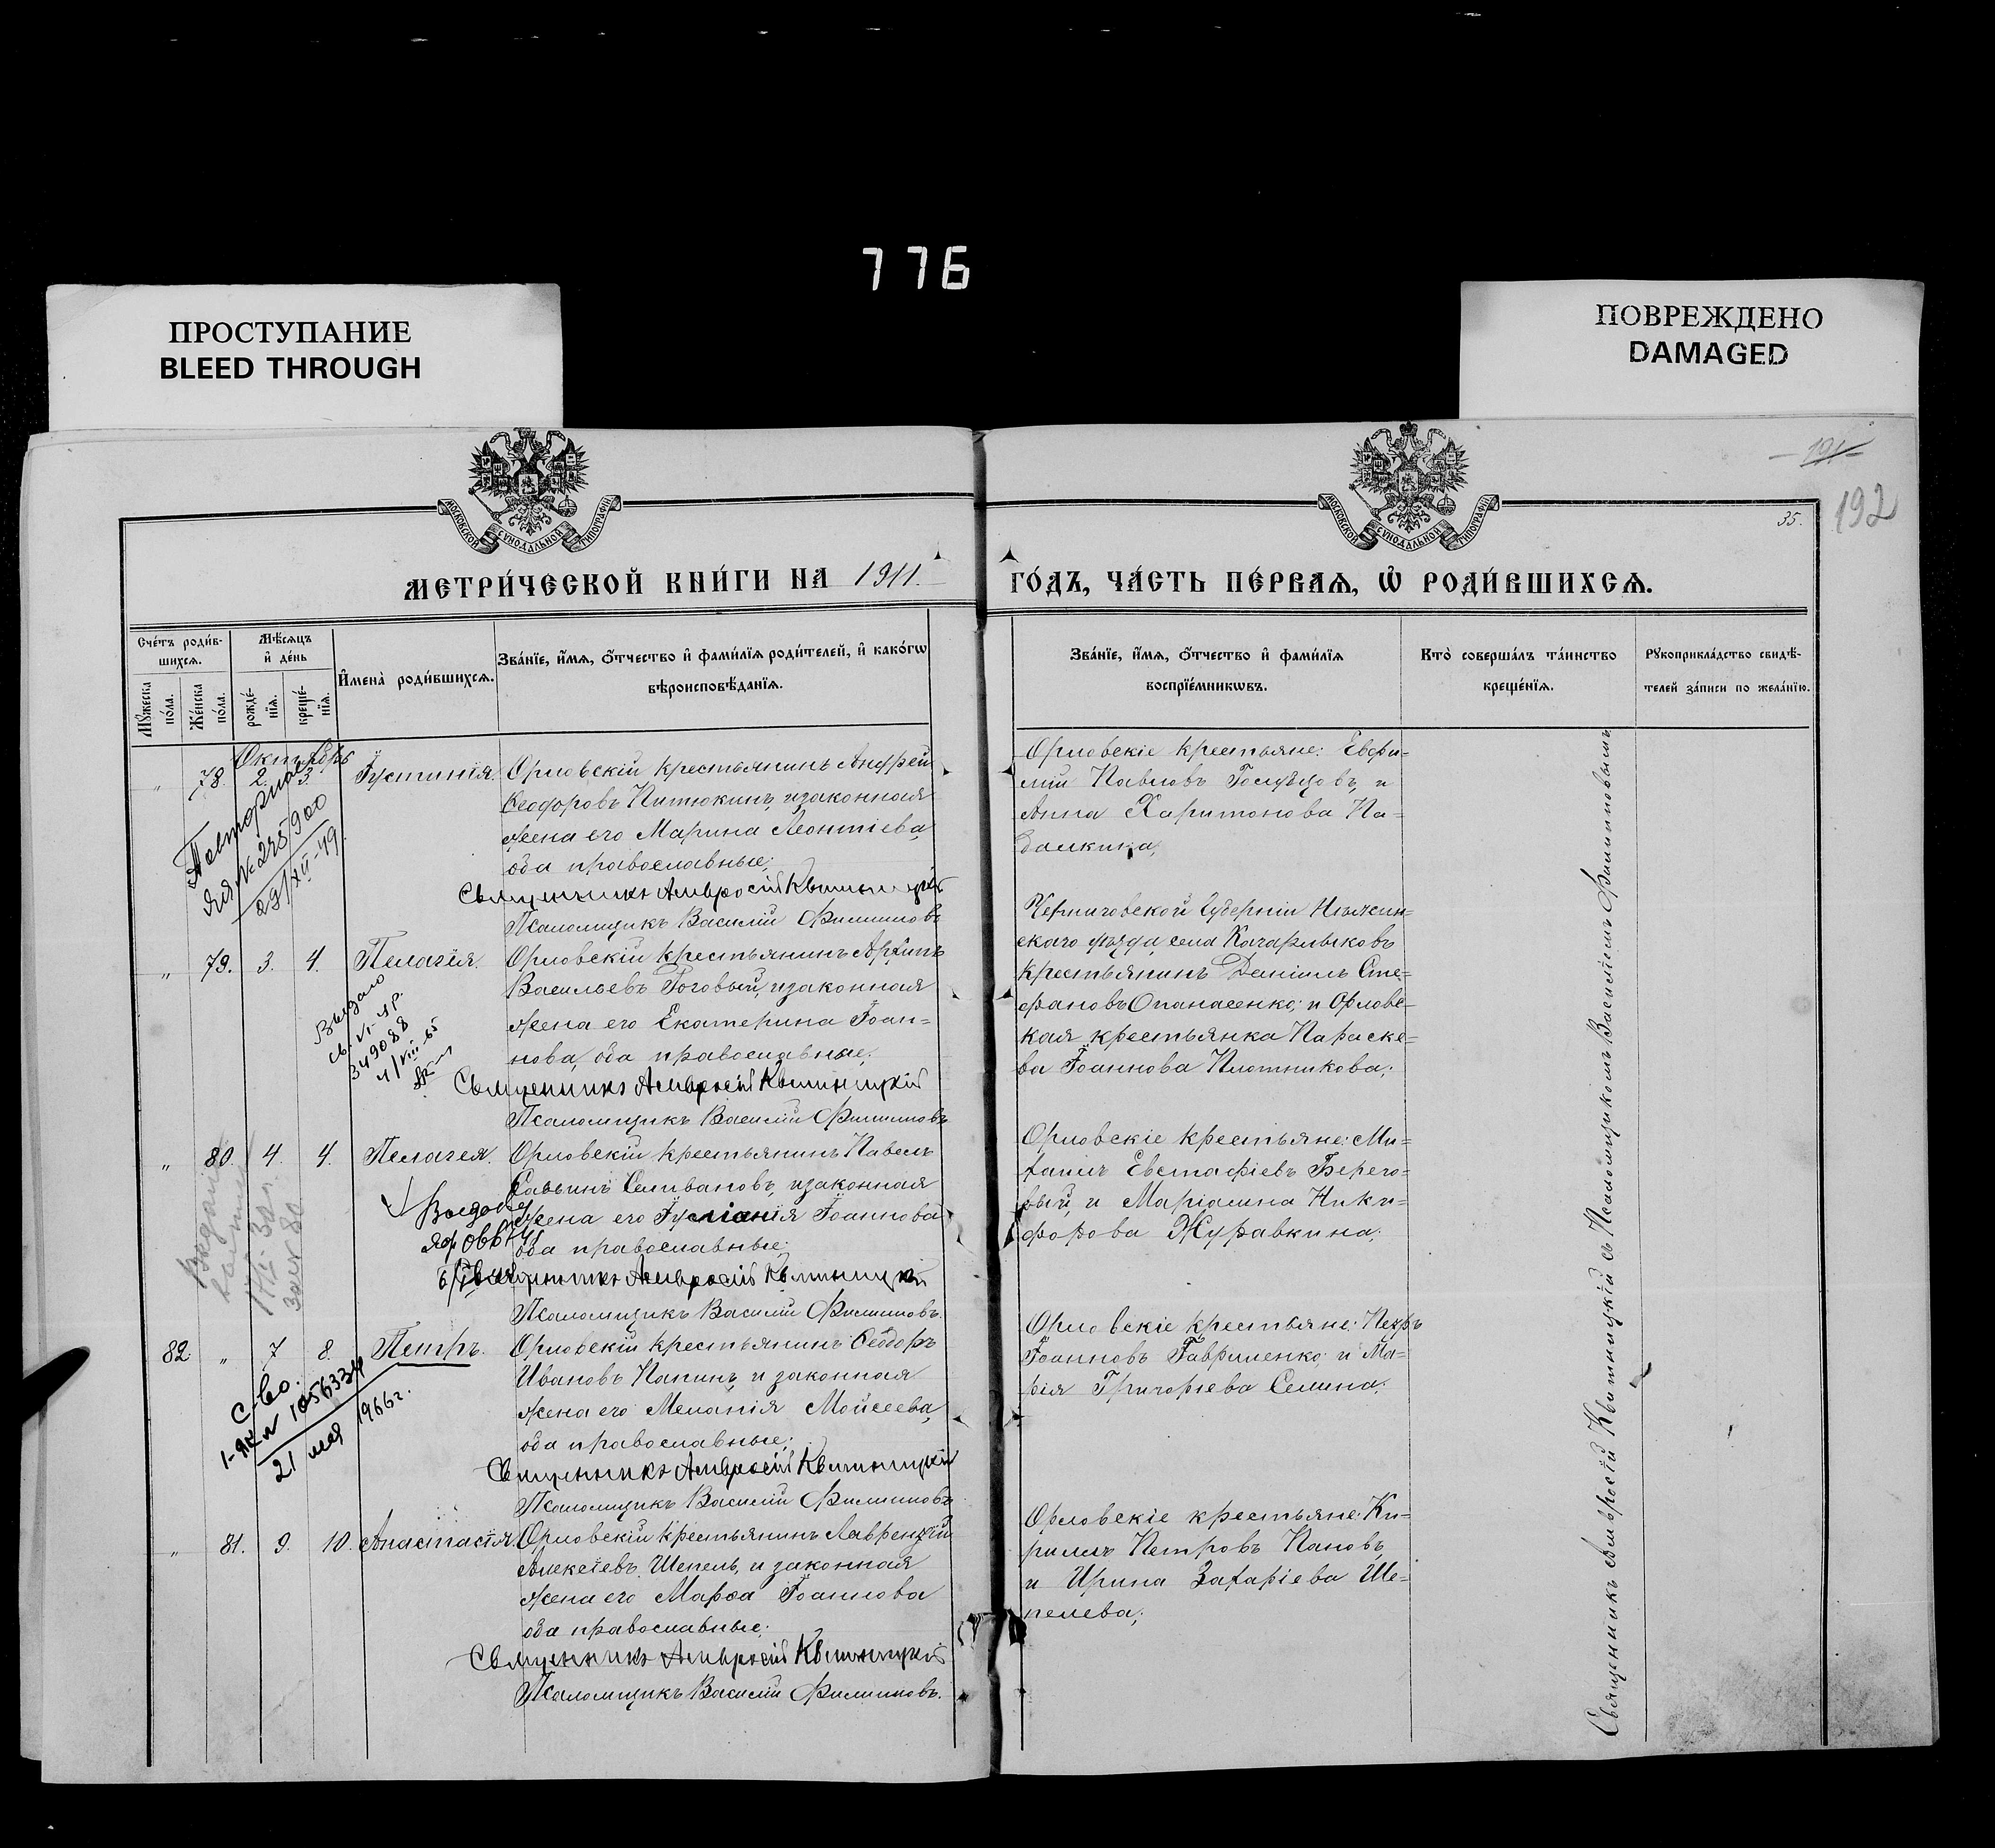 776
ПРОСТУПАНИЕ
BLEED THROUGH
ПОВРЕЖДЕНО
DAMAGED
МОСКОВСКОЙ СѴНОДАЛЬНОЙ ТИПОГРАФІИ
МОСКОВСКОЙ СѴНОДАЛЬНОЙ ТИПОГРАФІИ
191
192
35.
МЕТРИ́ЧЕСКОЙ КНИ́ГИ НА 1911. ГО́ДЪ, ЧА́СТЬ ПЕ́РВАЯ, Ѡ РОДИ́ВШИХСЯ.
Сче́тъ роди́в-
шихся.
Мꙋ́жеска
по́ла.
Же́нска
по́ла.
Мѣ́сяцъ
и҆ де́нь
рожде́-
нїя.
креще́-
нїя.
И҆мена̀ роди́вшихся.
Зва́нїе, и҆́мя, ѻ҆́тчество и҆ фами́лїя роди́телей, и҆ како́гѡ
вѣроисповѣ́данїя.
Зва́нїе, и҆́мя, ѻ҆́тчество и҆ фами́лїя
воспрїе́мникѡвъ.
Кто̀ соверша́лъ та́инство
креще́нїя.
Рꙋкоприкла́дство свидѣ́-
телей за́писи по жела́нїю.
Октябрь
" 78. 2. 3. Іустинія. Орловскій крестьянинъ Андрей
Ѳеодоровъ Питюкинъ, и законная
жена его Марина Леонтіева,
оба православные;
Священникъ Амвросій Квитницкій
Псаломщикъ Василій Филипповъ
Орловскіе крестьяне: Евфи-
мій Павловъ Голубовъ, и
Анна Харитонова Па-
далкина;
Повторное
№ 275900
29/XII-49.
" 79. 3. 4. Пелагія. Орловскій крестьянинъ Архипъ
Васильевъ Гоговый, и законная
жена его Екатерина Іоан-
нова, оба православные;
Священникъ Амвросій Квитницкій
Псаломщикъ Василій Филипповъ
Черниговской Губерніи Нѣжин-
скаго уѣзда, села
крестьянинъ Даніилъ Сте-
фановъ Опанасенко; и Орловс-
кая крестьянка Параске-
ва Іоаннова Плотникова;
Выдано
349088
4/VIII-65
" 80. 4. 4. Пелагея. Орловскій крестьянинъ Павелъ
Саввинъ Селивановъ, и законная
жена его Іуліанія Іоаннова
оба православные;
Священникъ Амвросій Квитницкій
Псаломщикъ Василій Филипповъ.
Орловскіе крестьяне: Ми-
хаилъ Евстафіевъ Берего-
вый, и Маріамна Ники-
форова Журавкина;
82. " 7 8. Петръ. Орловскій крестьянинъ Ѳеодоръ
Ивановъ Папинъ, и законная
жена его Меланія Мойсеева,
оба православные;
Священникъ Амвросій Квитницкій
Псаломщикъ Василій Филипповъ
Орловскіе крестьяне: Петръ
Іоанновъ Гавриленко; и Ма-
рія Григоріева Селина;
С-во.
1-ЯК № 1056334
21 мая 1966г.
" 81. 9. 10. Анастасія. Орловскій крестьянинъ Лаврентій
Алексіевъ Шепель, и законная
жена его Марѳа Іоаннова
оба православные;
Священникъ Амвросій Квитницкій
Псаломщикъ Василій Филипповъ.
Орловскіе крестьяне: Ки-
риллъ Петровъ Пановъ,
и Ирина Захаріева Ше-
пелева;
Священникъ Амвросій Квитницкій съ Псаломщикомъ Василіемъ Филипповымъ